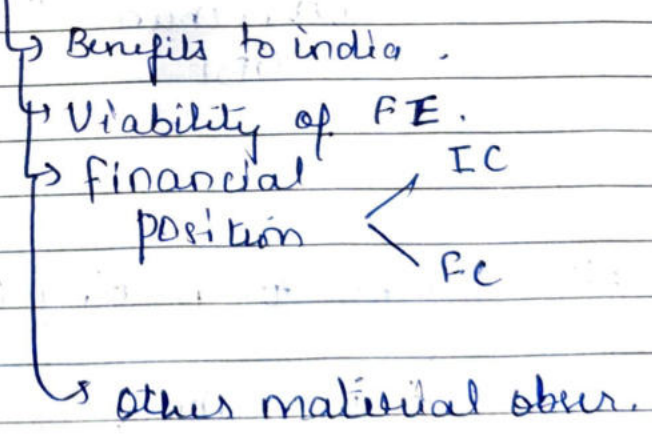 Benefits to india.
Viability of FE.
financial
position
IC
FC
other material obser.